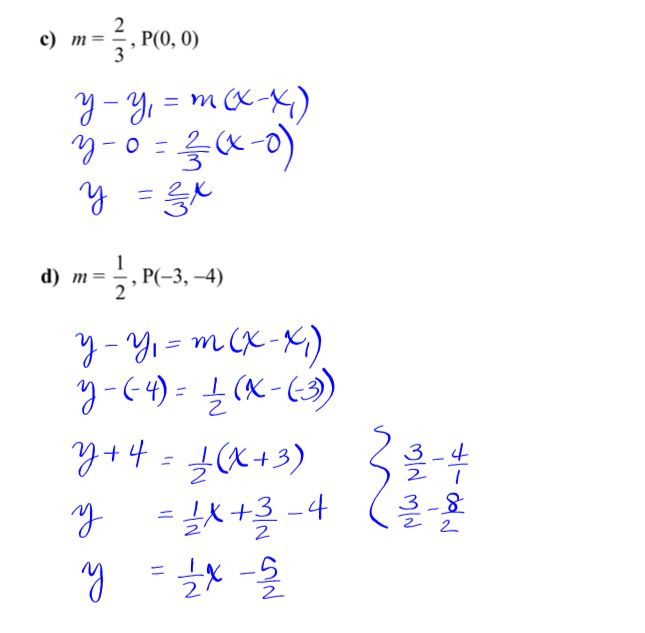 c) m = 2/3, P(0, 0)
y - y₁ = m(x - x₁)
y - 0 = 2/3 (x - 0)
y = 2/3 x
d) m = 1/2, P(–3, –4)
y - y₁ = m(x - x₁)
y - (-4) = 1/2 (x - (-3))
y + 4 = 1/2 (x + 3) { 3/2 - 4/1
y = 1/2 x + 3/2 - 4 3/2 - 8/2
y = 1/2 x - 5/2